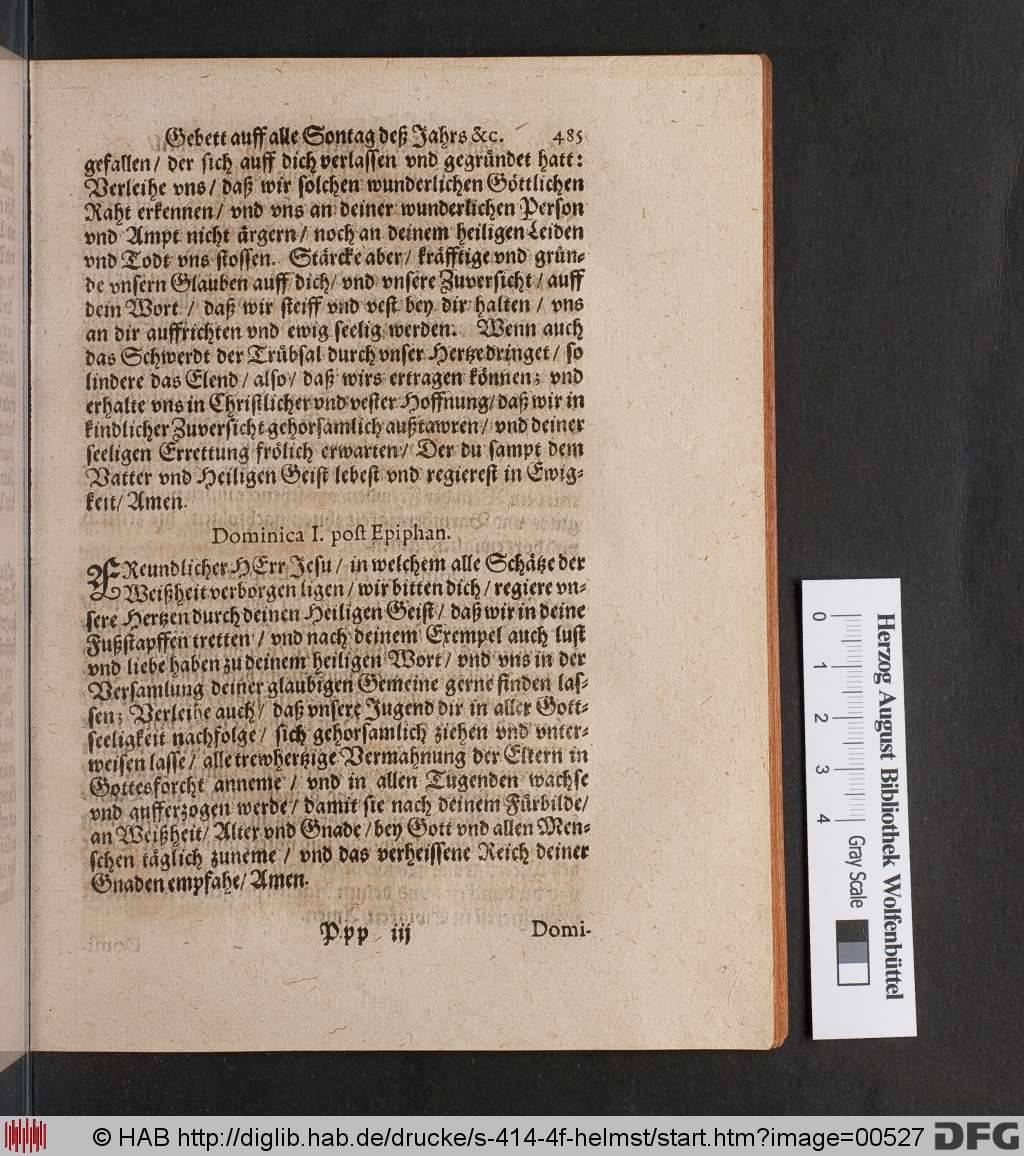 Gebett auff alle Sontag deß Jahrs &c. 485
gefallen / der sich auff dich verlassen vnd gegründet hatt:
Verleihe vns / daß wir solchen wunderlichen Göttlichen
Raht erkennen / vnd vns an deiner wunderlichen Person
vnd Ampt nicht ärgern / noch an deinem heiligen Leiden
vnd Todt vns stossen. Stärcke aber / kräfftige vnd grün-
de vnsern Glauben auff dich / vnd vnsere Zuversicht / auff
dein Wort / daß wir steiff vnd vest bey dir halten / vns
an dir auffrichten vnd ewig seelig werden. Wenn auch
das Schwerdt der Trübsal durch vnser Hertze dringet / so
lindere das Elend / also / daß wirs ertragen können; vnd
erhalte vns in Christlicher vnd vester Hoffnung / daß wir in
kindlicher Zuversicht gehorsamlich außtawren / vnd deiner
seeligen Errettung frölich erwarten / Der du sampt dem
Vatter vnd Heiligen Geist lebest vnd regierest in Ewig-
keit / Amen.
Dominica I. post Epiphan.
FReundlicher HErr Jesu / in welchem alle Schätze der
Weißheit verborgen ligen / wir bitten dich / regiere vn-
sere Hertzen durch deinen Heiligen Geist / daß wir in deine
Fußstapffen tretten / vnd nach deinem Exempel auch lust
vnd liebe haben zu deinem heiligen Wort / vnd vns in der
Versamlung deiner glaubigen Gemeine gerne finden las-
sen; Verleihe auch / daß vnsere Jugend dir in aller Gott-
seeligkeit nachfolge / sich gehorsamlich ziehen vnd vnter-
weisen lasse / alle trewhertzige Vermahnung der Eltern in
Gottesforcht anneme / vnd in allen Tugenden wachse
vnd aufferzogen werde / damit sie nach deinem Fürbilde /
an Weißheit / Alter vnd Gnade / bey Gott vnd allen Men-
schen täglich zuneme / vnd das verheissene Reich deiner
Gnaden empfahe / Amen.
Ppp iij Domi-
Herzog August Bibliothek Wolfenbüttel
0 1 2 3 4 Gray Scale
© HAB http://diglib.hab.de/drucke/s-414-4f-helmst/start.htm?image=00527 DFG